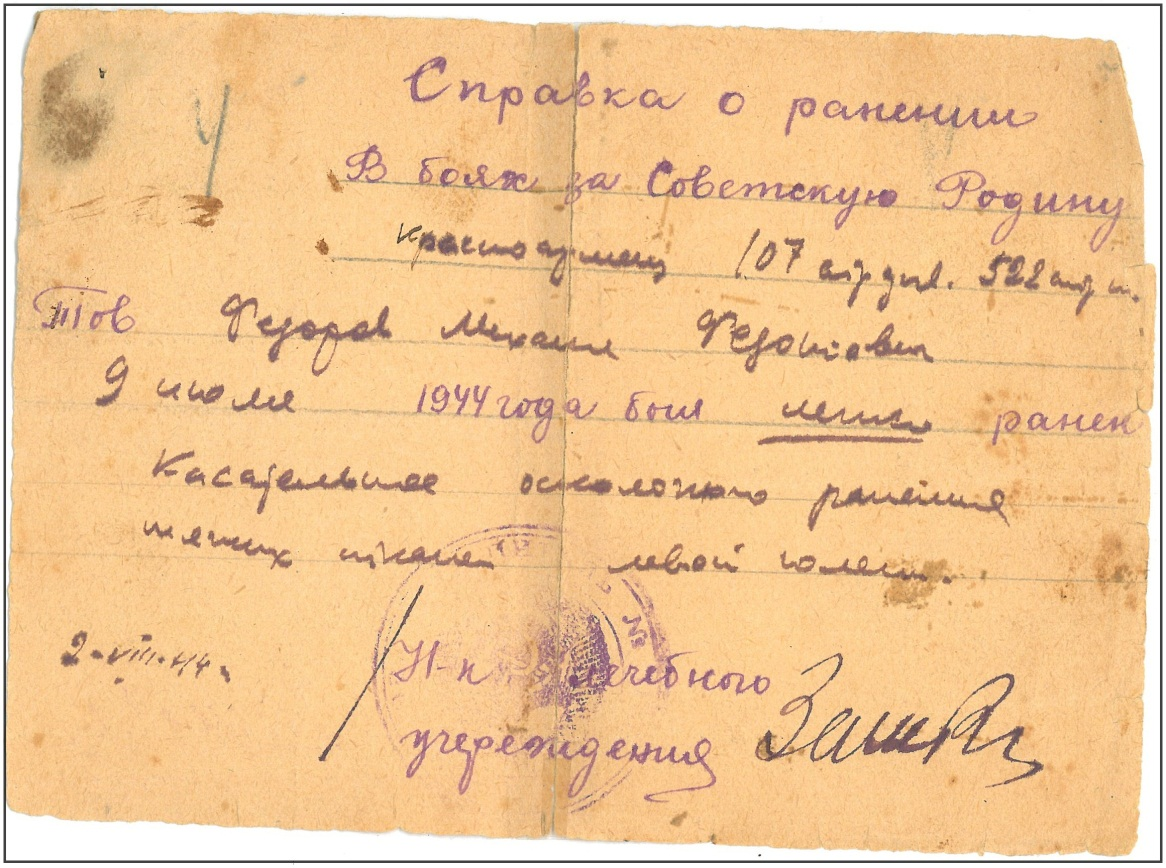 Справка о ранении
В боях за Советскую Родину
красноармеец 107 стр. див. 522 стр. п.
Тов Федоров Михаил
9 июля 1944 года был легко ранен
Касательное осколочного ранения
мягких тканей левой голени.
2-VIII-44.
Н-к лечебного
учереждения